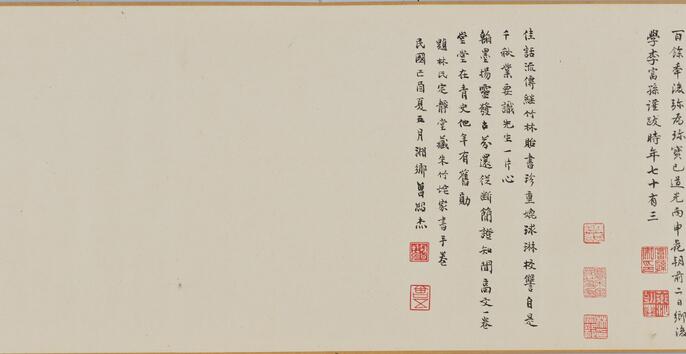 百餘年後珎為珎寶已道光丙申花朝前二日鄉後
學李富孫謹跋時年七十有三
佳話流傳繼竹林貽書珍重媲球琳校讐自是
千秋業要識先生一片心
翰墨揚靈發古芬還從斷簡證知聞高文一卷
堂堂在青史他年有舊勛
題林氏定靜堂藏朱竹垞家書手卷
民國己酉夏五月湘鄉曾紹杰